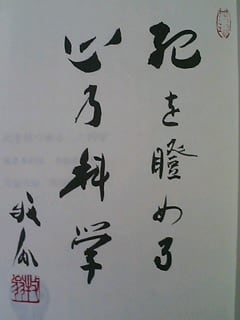 死を瞪める
心乃科学